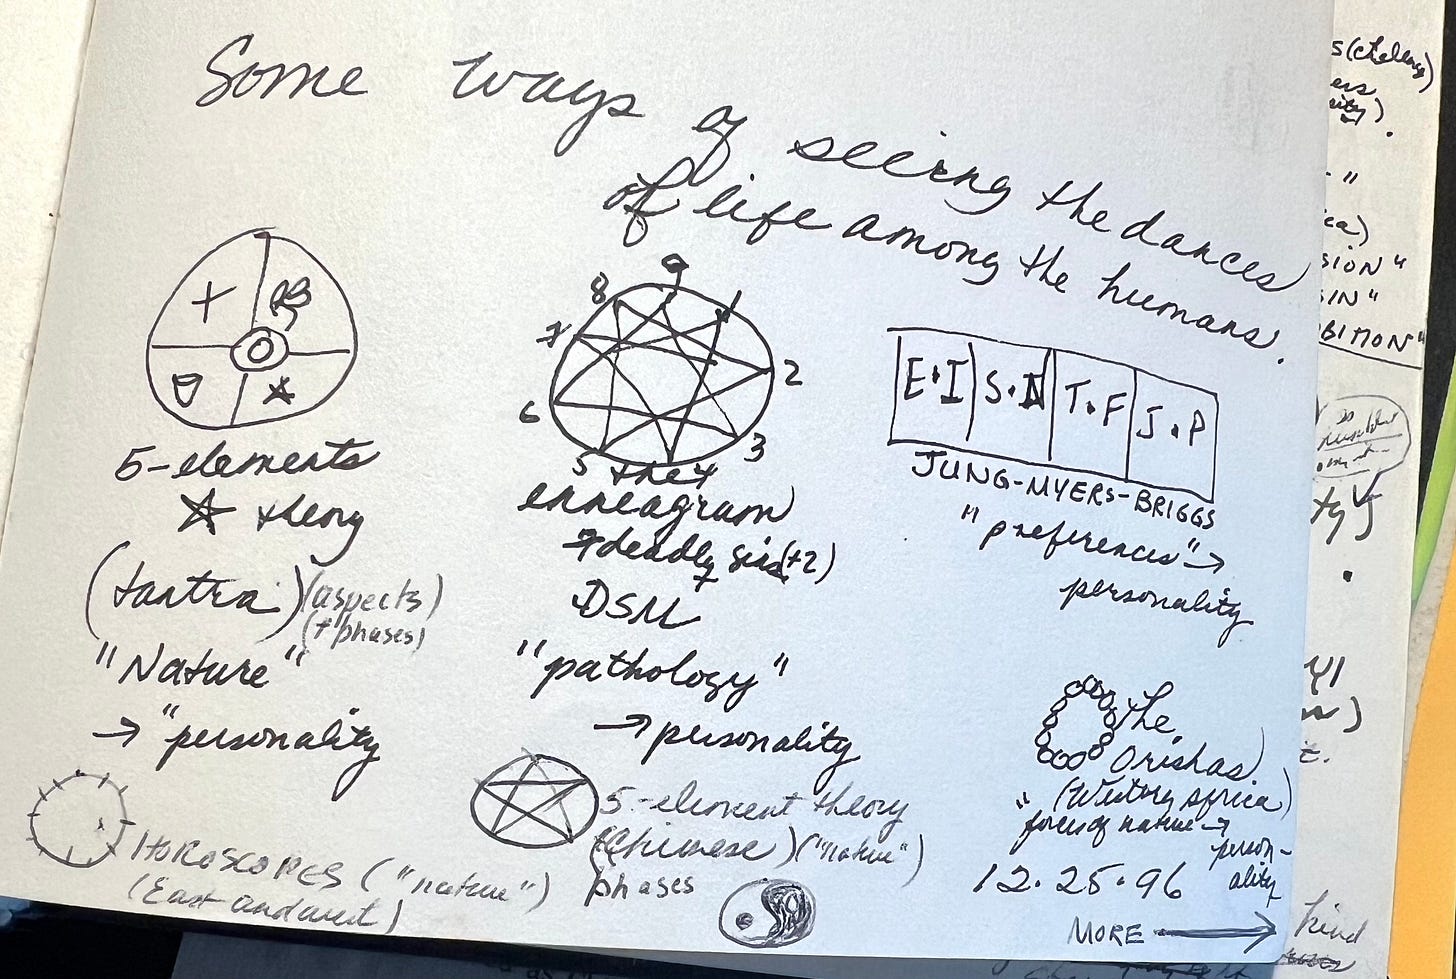 Some ways of seeing the dances
of life among the humans.
5-elements
theory
(tantra) (aspects)
(+ phases)
"Nature"
→ "personality
8 9 1
7 2
6 3
5 4
the
enneagram
7 deadly sins (+2)
DSM
"pathology"
→ personality
E•I S•N T•F J•P
JUNG-MYERS-BRIGGS
"preferences" →
personality
HOROSCOPES ("nature")
(East and west)
5-element theory
(Chinese) ("nature")
phases
the
Orishas.
(Western Africa)
"forces of nature" →
person-
ality
12.25.96
MORE →
s (challenge)
ers
"
ica)
SION"
SIN"
kind